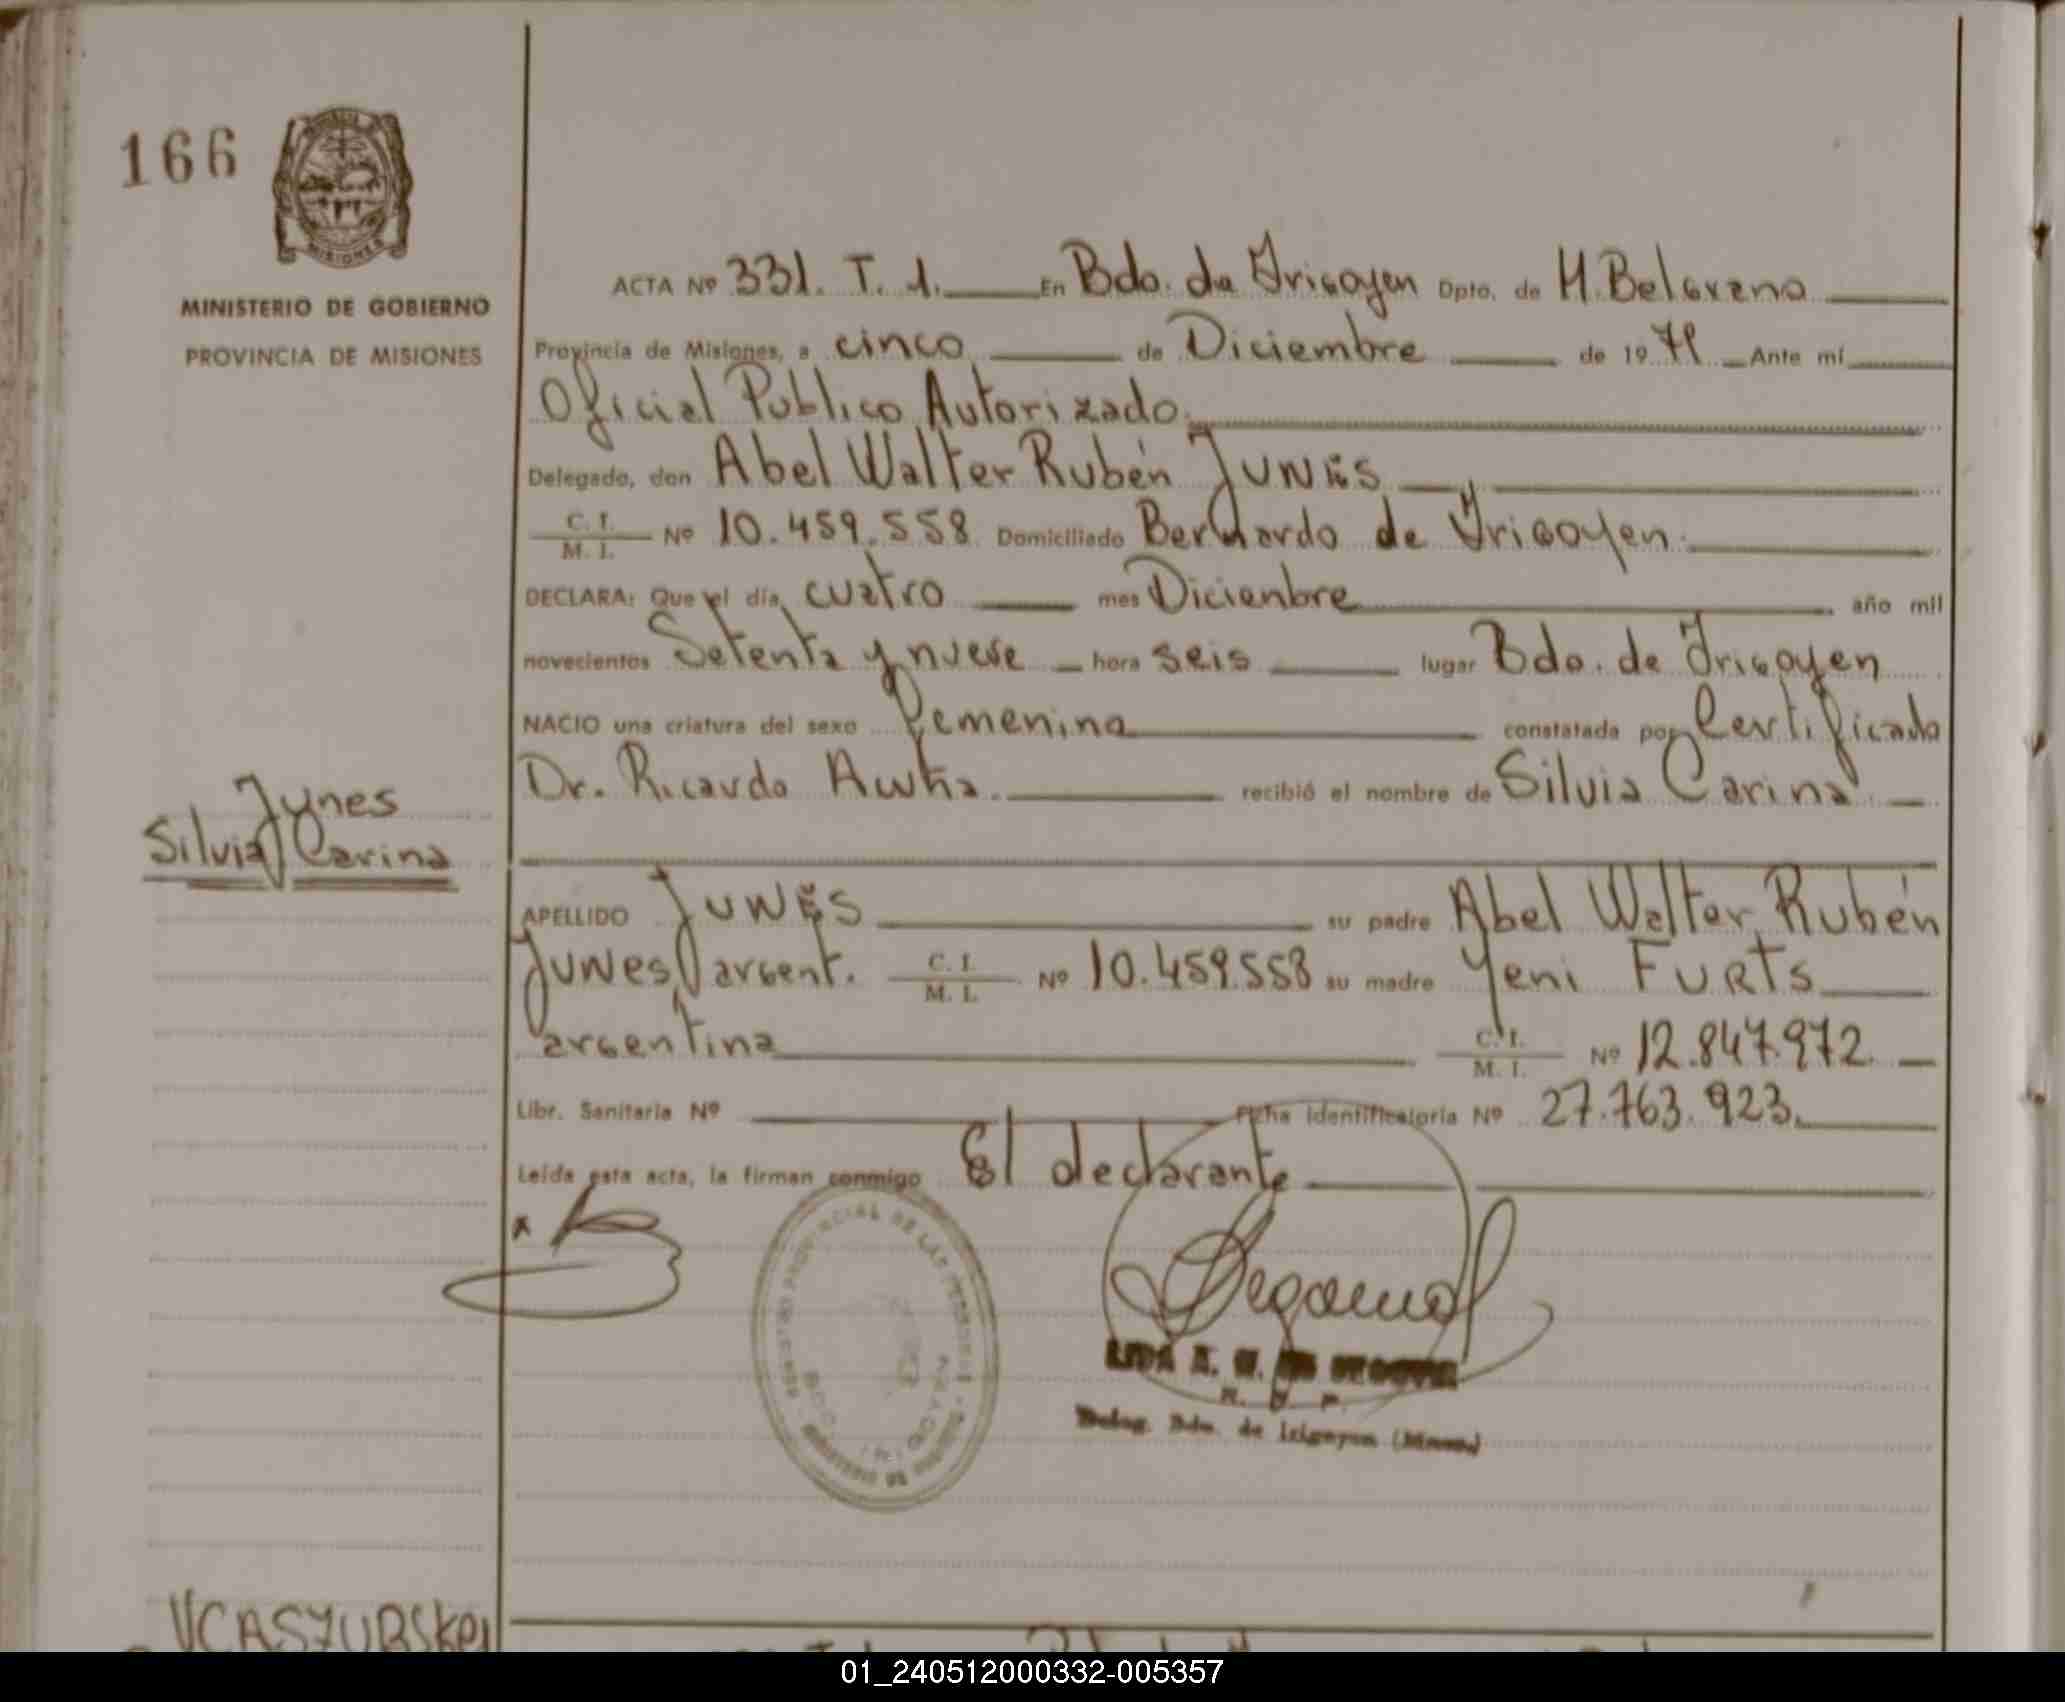 166
MISIONES
MINISTERIO DE GOBIERNO
PROVINCIA DE MISIONES
ACTA Nº 331. T. 1. En Bdo. de Irigoyen Dpto. de M. Belgrano
Provincia de Misiones, a cinco de Diciembre de 19 79 Ante mí
Oficial Publico Autorizado.
Delegado, don Abel Walter Rubén JUNES
C. I. / M. I. Nº 10.459.558 Domiciliado Bernardo de Irigoyen.
DECLARA: Que el día cuatro mes Dicienbre año mil
novecientos Setenta y nueve hora seis lugar Bdo. de Irigoyen
NACIO una criatura del sexo femenino constatada por Certificado
Dr. Ricardo recibió el nombre de Silvia Carina
Junes
Silvia Carina
APELLIDO JUNES su padre Abel Walter Rubén
Junes, argent. C. I. / M. I. Nº 10.459.558 su madre Yeni FURTS
argentina C. I. / M. I. Nº 12.847.972.
Libr. Sanitaria Nº Ficha identificatoria Nº 27.763.923.
Leída esta acta, la firman conmigo El declarante
x
REGISTRO PROVINCIAL DE LAS PERSONAS
BDO. IRIGOYEN
Deleg. Bdo. de Irigoyen (Mnes)
01_240512000332-005357